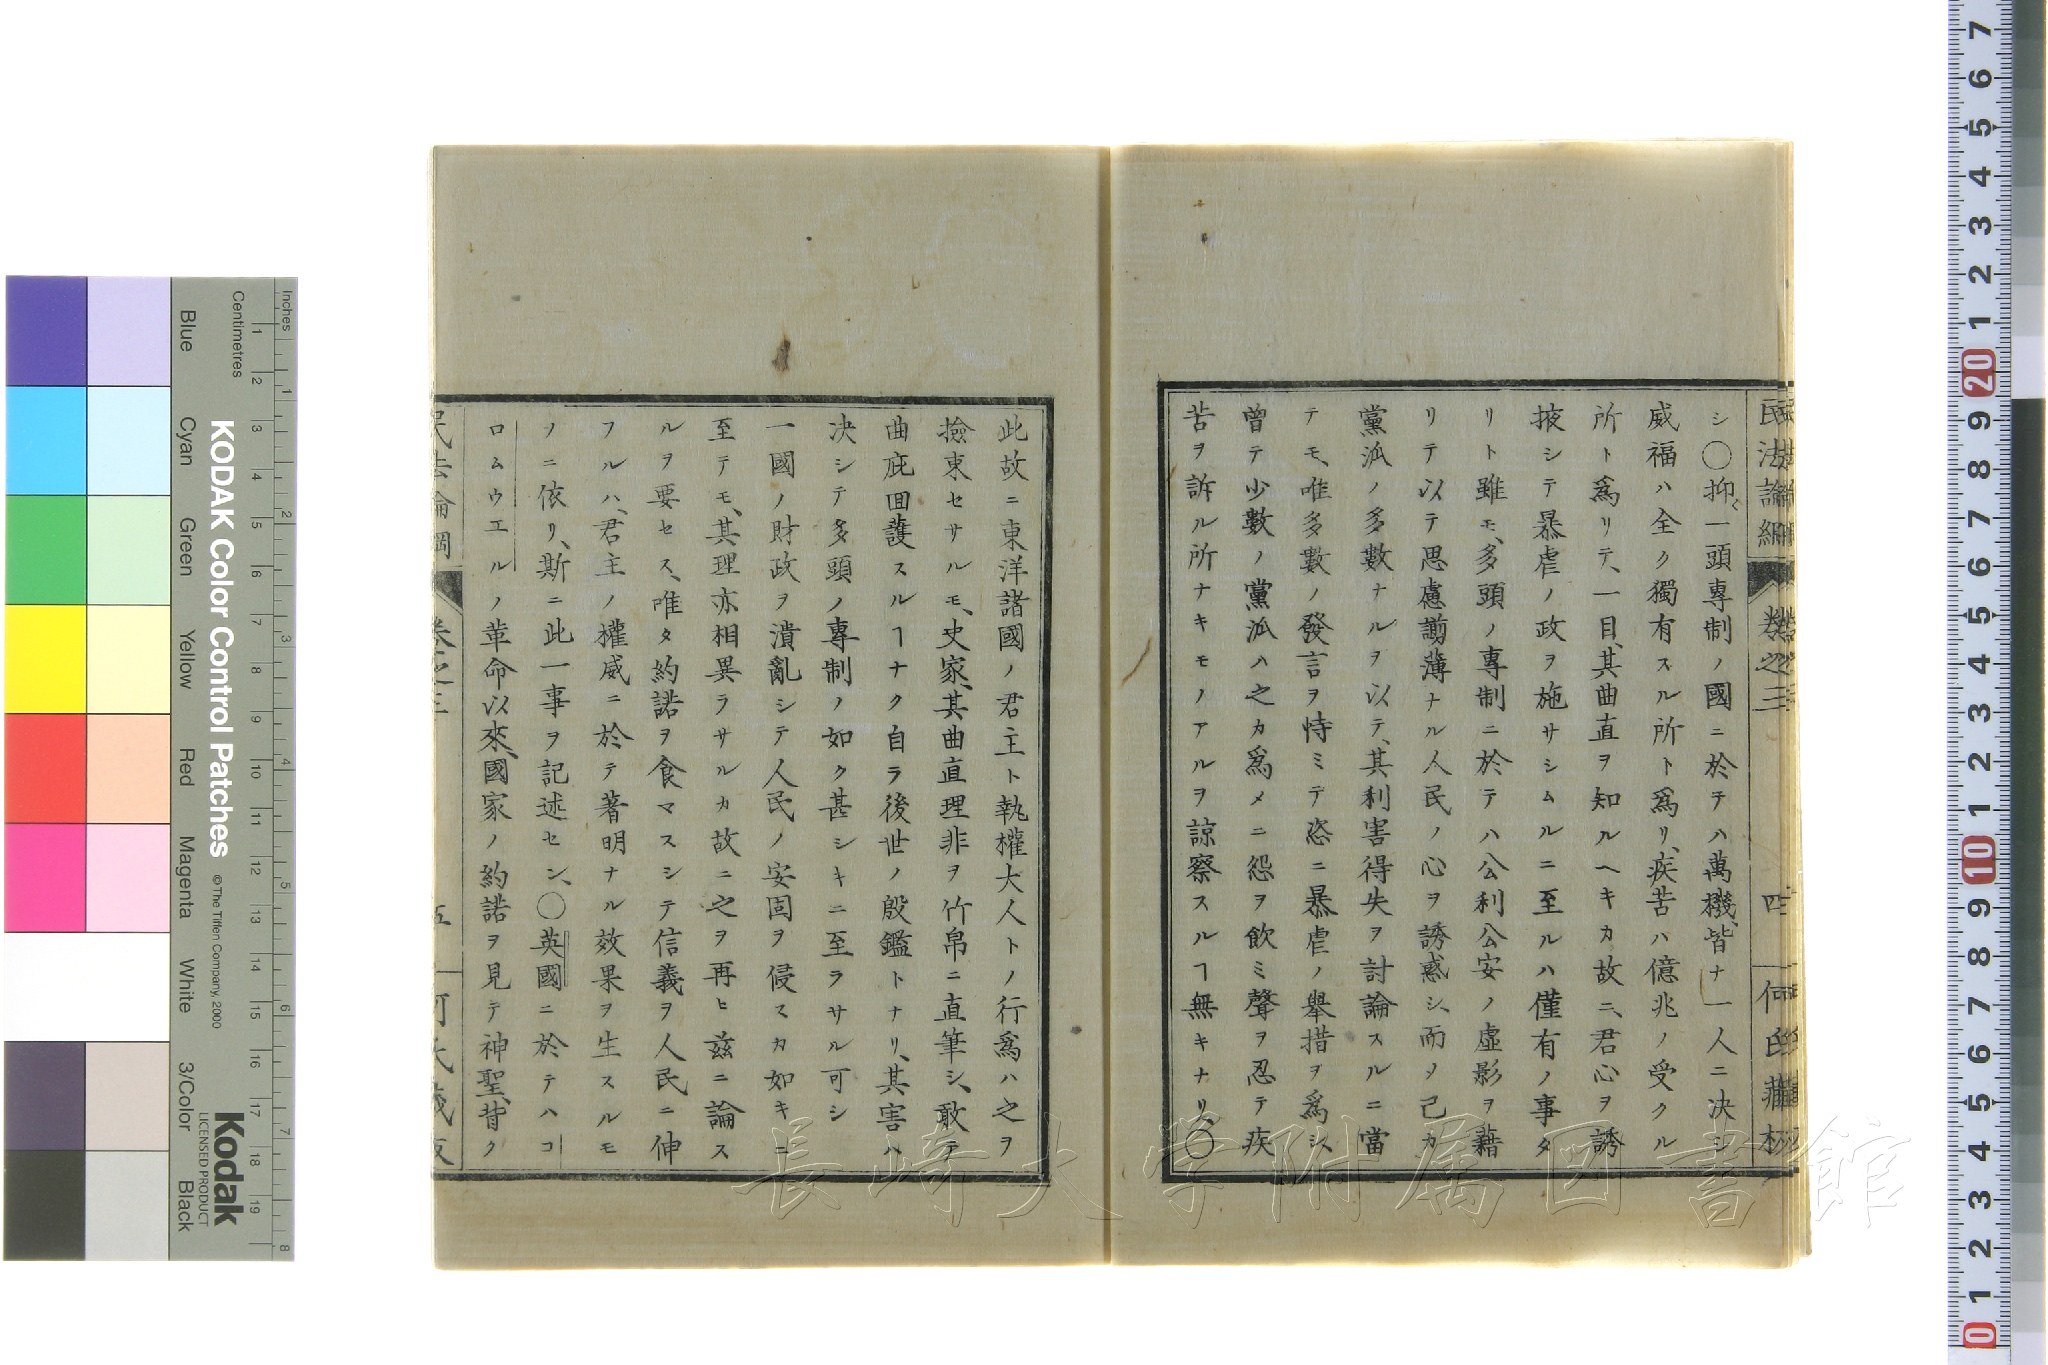 民法論綱
卷之三
四
何氏藏板
シ〇抑〻一頭專制ノ國ニ於テハ萬機、皆ナ一人ニ決シ
威福ハ全ク獨有スル所ト爲リ、疾苦ハ億兆ノ受クル
所ト爲リテ、一目、其曲直ヲ知ルヘキカ故ニ、君心ヲ誘
掖シテ暴虐ノ政ヲ施サシムルニ至ルハ僅有ノ事タ
リト雖モ、多頭ノ專制ニ於テハ公利公安ノ虛影ヲ藉
リテ以テ思慮謭薄ナル人民ノ心ヲ誘惑シ、而ソ己カ
黨派ノ多數ナルヲ以テ、其利害得失ヲ討論スルニ當
テモ、唯多數ノ發言ヲ恃ミテ恣ニ暴虐ノ舉措ヲ爲シ、
曾テ少數ノ黨派ハ之カ爲メニ怨ヲ飲ミ聲ヲ忍テ疾
苦ヲ訴ル所ナキモノアルヲ諒察スルヿ無キナリ、〇
此故ニ東洋諸國ノ君主ト執權大人トノ行爲ハ之ヲ
撿束セサルモ、史家、其曲直理非ヲ竹帛ニ直筆シ、敢テ
曲庇囬護スルヿナク自ラ後世ノ殷鑑トナリ、其害ハ
决シテ多頭ノ專制ノ如ク甚シキニ至ラサル可シ
一國ノ財政ヲ潰亂シテ人民ノ安固ヲ侵スカ如キニ
至テモ、其理亦相異ラサルカ故ニ之ヲ再ヒ茲ニ論ス
ルヲ要セス、唯タ約諾ヲ食マスシテ信義ヲ人民ニ伸
フルハ、君主ノ權威ニ於テ著明ナル效果ヲ生スルモ
ノニ依リ、斯ニ此一事ヲ記述セン、〇英國ニ於テハコ
ロムウエルノ革命以來、國家ノ約諾ヲ見テ神聖、背ク
民法論綱
卷之三
五
何氏藏板
長崎大学附属図書館
KODAK Color Control Patches
© The Tiffen Company, 2000
Kodak
LICENSED PRODUCT
Inches
Centimetres
Blue
Cyan
Green
Yellow
Red
Magenta
White
3/Color
Black